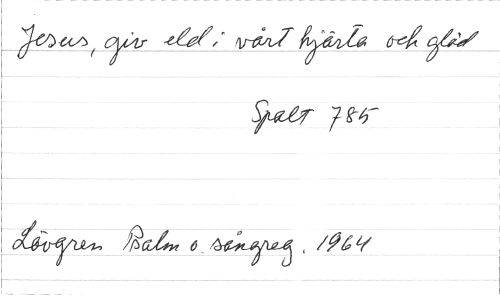 Jesus, giv eld i vårt hjärta och glöd
Spalt 785
Lövgren Psalm o. sångreg. 1964